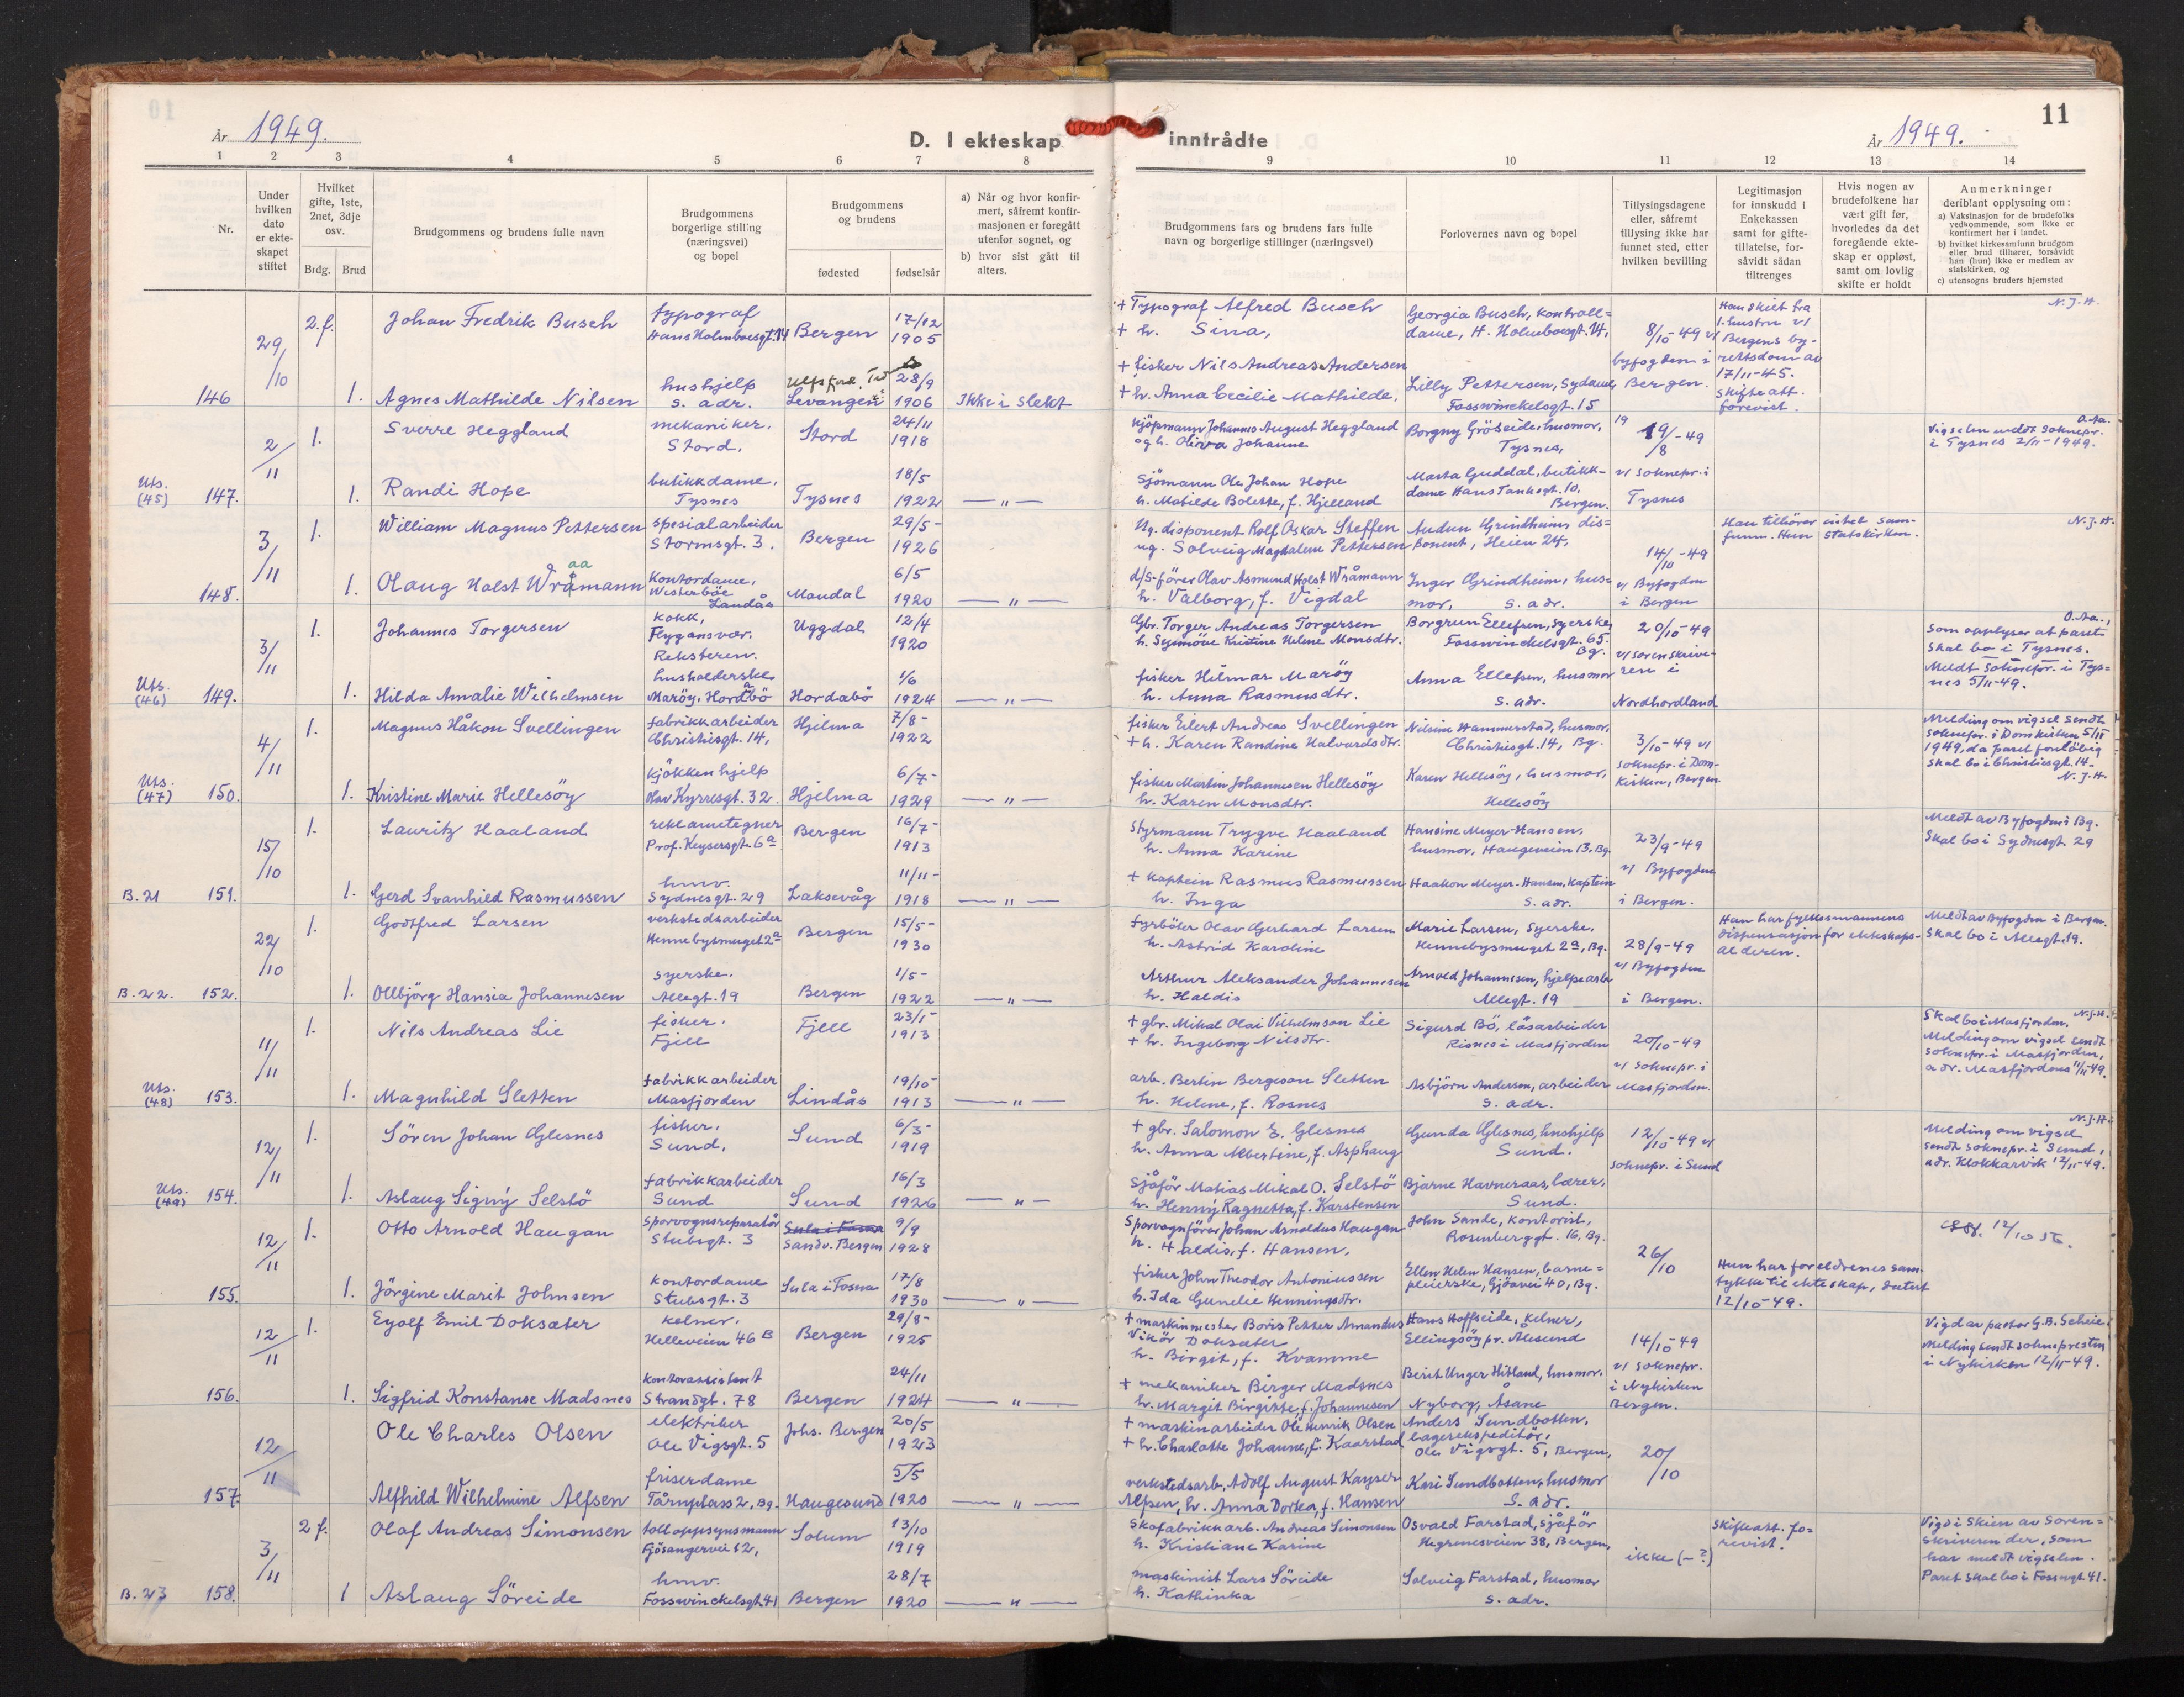 År 1949.
D. I ekteskap inntrådte
År 1949.
11
1 2 3 4 5 6 7 8 9 10 11 12 13 14
Nr.
Under hvilken dato er ekteskapet stiftet
Hvilket gifte, 1ste, 2net, 3dje osv.
Brdg. Brud
Brudgommens og brudens fulle navn
Brudgommens borgerlige stilling (næringsvei) og bopel
Brudgommens og brudens
fødested fødselsår
a) Når og hvor konfirmert, såfremt konfirmasjonen er foregått utenfor sognet, og
b) hvor sist gått til alters.
Brudgommens fars og brudens fars fulle navn og borgerlige stillinger (næringsvei)
Forlovernes navn og bopel
Tillysingsdagene eller, såfremt tillysing ikke har funnet sted, etter hvilken bevilling
Legitimasjon for innskudd i Enkekassen samt for giftetillatelse, forsåvidt sådan tiltrenges
Hvis nogen av brudefolkene har vært gift før, hvorledes da det foregående ekteskap er oppløst, samt om lovlig skifte er holdt
Anmerkninger deriblant opplysning om:
a) Vaksinasjon for de brudefolks vedkommende, som ikke er konfirmert her i landet.
b) hvilket kirkesamfunn brudgom eller brud tilhører, forsåvidt han (hun) ikke er medlem av statskirken, og
c) utensogns bruders hjemsted
146 29/10 2.f. Johan Fredrik Busch typograf Hans Holmboesgt. 14 Bergen 17/12 1905
+ Typograf Alfred Busch + h. Sina, Georgia Busch, kontrolldame, H. Holmboesgt. 14, 8/10-49 v/ byfogden i Bergen. Han skilt fra 1. hustru v/ Bergens byrettsdom av 17/11-45. Skifteatt. forevist. N.J.H.
1. Agnes Mathilde Nilsen hushjelp s. adr. Levangen 28/9 1906 Ikke i slekt
+ fisker Nils Andreas Andersen + h. Anna Cecilie Mathilde, Lilly Pettersen, Sydame, Fosswinckelsgt. 15
Uts. (45) 147. 2/11 1. Sverre Heggland mekaniker, Stord. Stord 24/11 1918
Kjøpmann Johannes August Heggland og h. Oliva Johanne Borgny Gröseide, husmor, Tysnes, 19/8-49 v/ soknepr. i Tysnes O.Aa. Vigselen meldt soknepr. i Tysnes 2/11-1949.
1. Randi Hope butikkdame, Tysnes Tysnes 18/5 1922 — " —
Sjömann Ole Johan Hope h. Matilde Bolette, f. Hjelland Marta Guddal, butikkdame Hans Tanksgt. 10, Bergen.
148. 3/11 1. William Magnus Pettersen spesialarbeider Stormsgt. 3. Bergen 29/5- 1926
Ug. disponent Rolf Oskar Steffen ug. Solveig Magdalene Pettersen Audun Grindheim, disponent, Heien 24, 14/10-49 v/ Byfogden i Bergen Han tilhörer intet samfunn. Hun statskirken. N.J.H.
1. Olaug Holst Wråmann aa Kontordame, Wisterböe Landås Mandal 6/5 1920 — " —
d/s-förer Olav Asmund Holst Wråmann h. Valborg, f. Vigdal Inger Grindheim, husmor, s. adr.
Uts. (46) 149. 3/11 1. Johannes Torgersen kokk, Flygansvær, Reksteren. Uggdal 12/4 1920
Gbr. Torger Andreas Torgersen h. Synnöve Kristine Helene Monsdtr. Borgrun Ellefsen, syerske, Fosswinckelsgt. 65. Bg. 20/10-49 v/ sorenskriveren i Nordhordland O.Aa., som opplyser at paret skal bo i Tysnes. Meldt soknepr. i Tysnes 5/11-49.
1. Hilda Amalie Wilhelmsen husholderske, Maröy, Hordabö Hordabö 1/6 1924 — " —
fisker Hilmar Maröy h. Anna Rasmusdtr. Anna Ellefsen, husmor s. adr.
Uts. (47) 150. 4/11 1. Magnus Håkon Svellingen fabrikkarbeider Christiesgt. 14, Hjelma 7/8- 1922
fisker Eilert Andreas Svellingen + h. Karen Randine Halvardsdtr. Nilsine Hammerstad, husmor, Christiesgt. 14, Bg. 3/10-49 v/ soknepr. i Domkirken, Bergen. Melding om vigsel sendt soknepr. i Domkirken 5/11 1949, da paret forelöbig skal bo i Christiesgt. 14. N.J.H.
1. Kristine Marie Hellesöy kjökkenhjelp Olav Kyrresgt. 32. Hjelma 6/7- 1929 — " —
fisker Martin Johannesen Hellesöy h. Karen Monsdtr. Karen Hellesöy, husmor, Hellesöy
B. 21 151. 15/10 1. Lauritz Haaland reklametegner Prof. Keysersgt. 6a Bergen 16/7- 1913
Styrmann Trygve Haaland h. Anna Karine Hansine Meyer-Hansen, husmor, Haugeveien 13, Bg. 23/9-49 v/ Byfogden i Bergen. Meldt av Byfogden i Bg. Skal bo i Sydnesgt. 29
1. Gerd Svanhild Rasmussen hmv. Sydnesgt. 29 Laksevåg 11/11- 1918 — " —
+ Kaptein Rasmus Rasmussen h. Inga Haakon Meyer-Hansen, Kaptein s. adr.
B. 22. 152. 22/10 1. Godtfred Larsen verkstedsarbeider Hennebysmuget 2a Bergen 15/5- 1930
fyrböter Olav Gerhard Larsen h. Astrid Karoline Marie Larsen, syerske, Hennebysmuget 2a, Bg. 28/9-49 v/ Byfogden i Bergen. Han har fylkesmannens dispensasjon for ekteskapsalderen. Meldt av Byfogden i Bergen. Skal bo i Allegt. 19.
1. Ollbjörg Hansia Johannesen syerske. Allegt. 19 Bergen 1/5- 1922 — " —
Arthur Aleksander Johannesen h. Haldis Arnold Johannesen, hjelpearb. Allegt. 19
Uts. (48) 153. 11/11 1. Nils Andreas Lie fisker. Fjell Fjell 23/1- 1913
+ gbr. Mikal Olai Vilhelmson Lie + h. Ingeborg Nilsdtr. Sigurd Bö, låsarbeider Risnes i Masfjorden 20/10-49 v/ soknepr. i Masfjorden. N.J.H. Skal bo i Masfjorden. Melding om vigsel sendt soknepr. i Masfjorden, adr. Masfjordnes 11/11-49.
1. Magnhild Sletten fabrikkarbeider Masfjorden Lindås 19/10- 1913 — " —
arb. Bertin Bergeson Sletten h. Helene, f. Rosnes Asbjörn Andersen, arbeider s. adr.
Uts. (49) 154. 12/11 1. Sören Johan Glesnes fisker, Sund, Sund 6/3- 1919
+ gbr. Salomon E. Glesnes h. Anna Albertine, f. Asphaug Gunda Glesnes, hushjelp Sund. 12/10-49 v/ soknepr. i Sund N.J.H. Melding om vigsel sendt soknepr. i Sund, adr. Klokkarvik 12/11-49.
1. Aslaug Signý Selstö fabrikkarbeider Sund Sund 16/3 1926 — " —
Sjåför Matias Mikal O. Selstö h. Henný Ragnetta, f. Karstensen Bjarne Havneraas, lærer, Sund.
155. 12/11 1. Otto Arnold Haugan Sporvognsreparatör Stubsgt. 3 Sula i Fosna Sandv. Bergen 9/9 1928
Sporvognförer Johan Arnoldus Haugan h. Haldis, f. Hansen, John Sande, kontorist, Rosenberggt. 16, Bg. 26/10 Hun har foreldrenes samtykke til ekteskap, datert 12/10-49.
1. Jörgine Marit Johnsen kontordame Stubsgt. 3 Sula i Fosna 17/8 1930 — " —
fisker John Theodor Antoniussen h. Ida Gunelie Henningsdtr. Ellen Helen Hansen, barnepleierske, Gjöavei 40, Bg.
156. 12/11 1. Eyolf Emil Doksæter kelner, Helleveien 46 B Bergen 29/8- 1925
+ maskinmester Boris Petter Amandus Vikör Doksæter h. Birgit, f. Kvamme Hans Hoffseide, kelner, Ellingsöy pr. Ålesund 14/10-49 v/ soknepr. i Nykirken Bergen. Vigd av pastor G.B. Scheie. Melding sendt soknepresten i Nykirken 12/11-49.
1. Sigfrid Konstanse Madsnes kontorassistent Strandgt. 78 Bergen 24/11 1924 — " —
+ mekaniker Birger Madsnes h. Margit Birgitte, f. Johannesen Berit Unger Hitland, husmor, Nyborg, Åsane
157. 12/11 Ole Charles Olsen elektriker Ole Vigsgt. 5 Johs. Bergen 20/5 1923
+ maskinarbeider Ole Henrik Olsen + h. Charlotte Johanne, f. Kaarstad Anders Sundbotten, lagerekspeditör, Ole Vigsgt. 5, Bergen, 20/10
Alfhild Wilhelmine Alfsen friserdame Tårnplass 2, Bg. Haugesund 5/5 1920 — " —
verkstedsarb. Adolf August Kayser Alfsen, h. Anna Dortea, f. Hansen Kari Sundbotten, husmor s. adr.
B. 23 158. 3/11 2 f. Olaf Andreas Simonsen tolloppsynsmann Fjösangervei 62, Solum 13/10 1919
Skofabrikkarb. Andreas Simonsen h. Kristiane Karine Osvald Farstad, sjåför Hegrenesveien 38, Bergen, ikke (-?) Skifteatt. forevist. Vigd i Skien av Sorenskriveren der, som har meldt vigselen. Paret skal bo i Fosswgt. 41.
1 Aslaug Söreide hmv. Fosswinckelsgt. 41 Bergen 28/7 1920 — " —
maskinist Lars Söreide h. Kathinka Solveig Farstad, husmor s. adr.